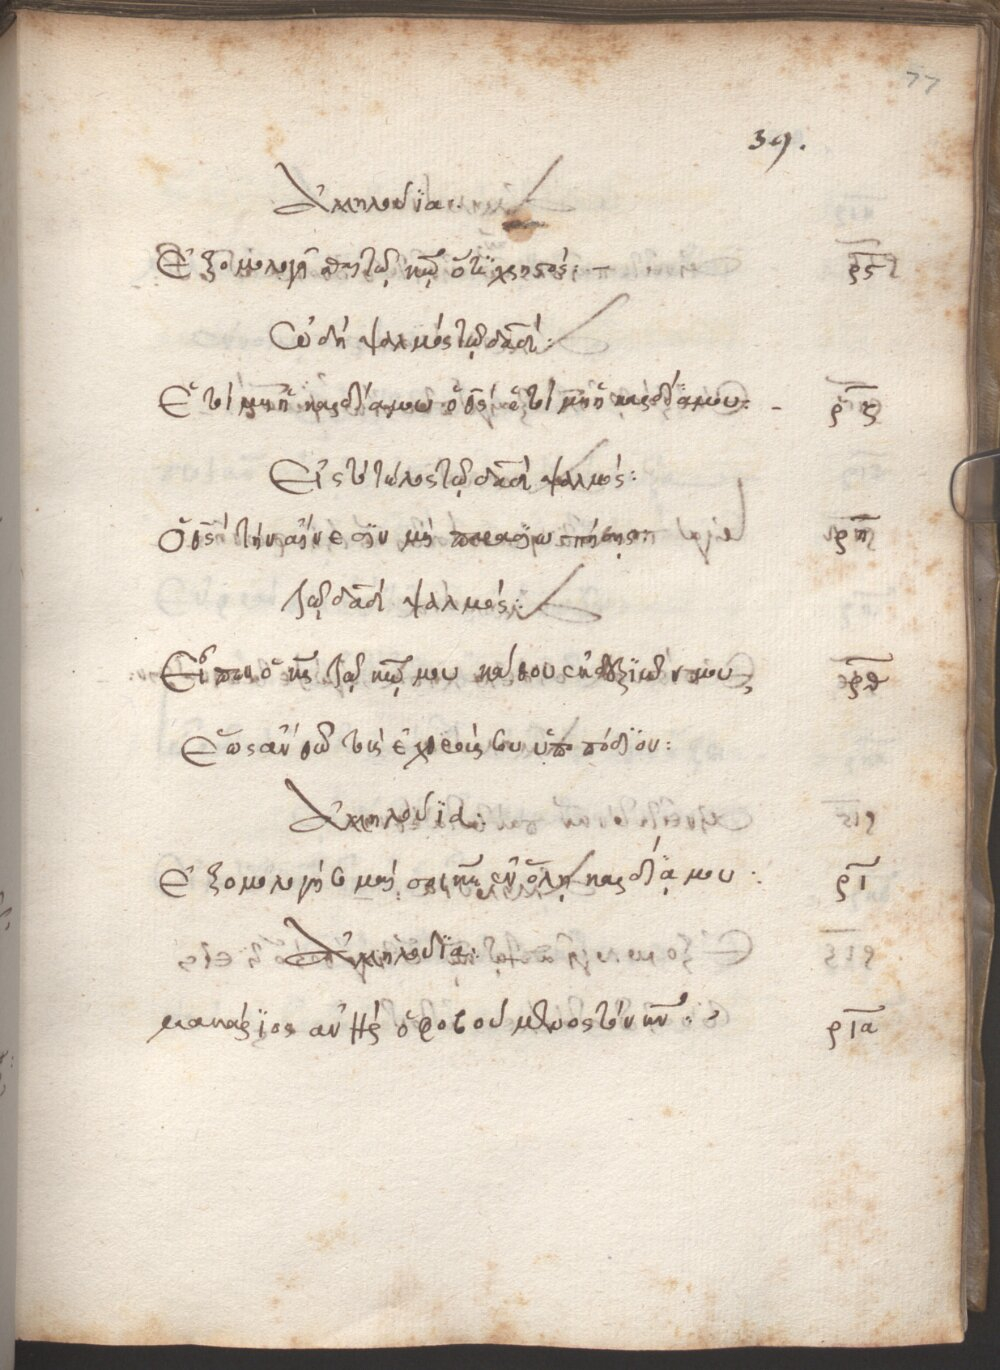 77
39.
Ἀλληλούϊα
Ἐξομολογεῖσθε τῷ κω̅ ὅτι χρηστός: — ρϛ
Ὠδὴ ψαλμὸς τῷ δα̅δ:
Ἑτοίμη ἡ καρδία μου ὁ θς̅ ἑτοίμη ἡ καρδία μου: ρζ
Εἰς τὸ τέλος τῷ δα̅δ ψαλμός:
Ὁ θς̅ τὴν αἴνεσίν μου μὴ παρασιωπήσῃς: ρη
Τῷ δα̅δ ψαλμός:
Εἶπεν ὁ κς̅ τῷ κω̅ μου κάθου ἐκ δεξιῶν μου, ρθ
Ἕως ἂν θῶ τοὺς ἐχθρούς σου ὑποπόδϊον:
Ἀλληλούϊα:
Ἐξομολογήσομαί σοι κε̅ ἐν ὅλῃ καρδίᾳ μου: ρι
Ἀλληλούϊα:
μακάρϊος ἀνὴρ ὁ φοβούμενος τὸν κν̅: ρια